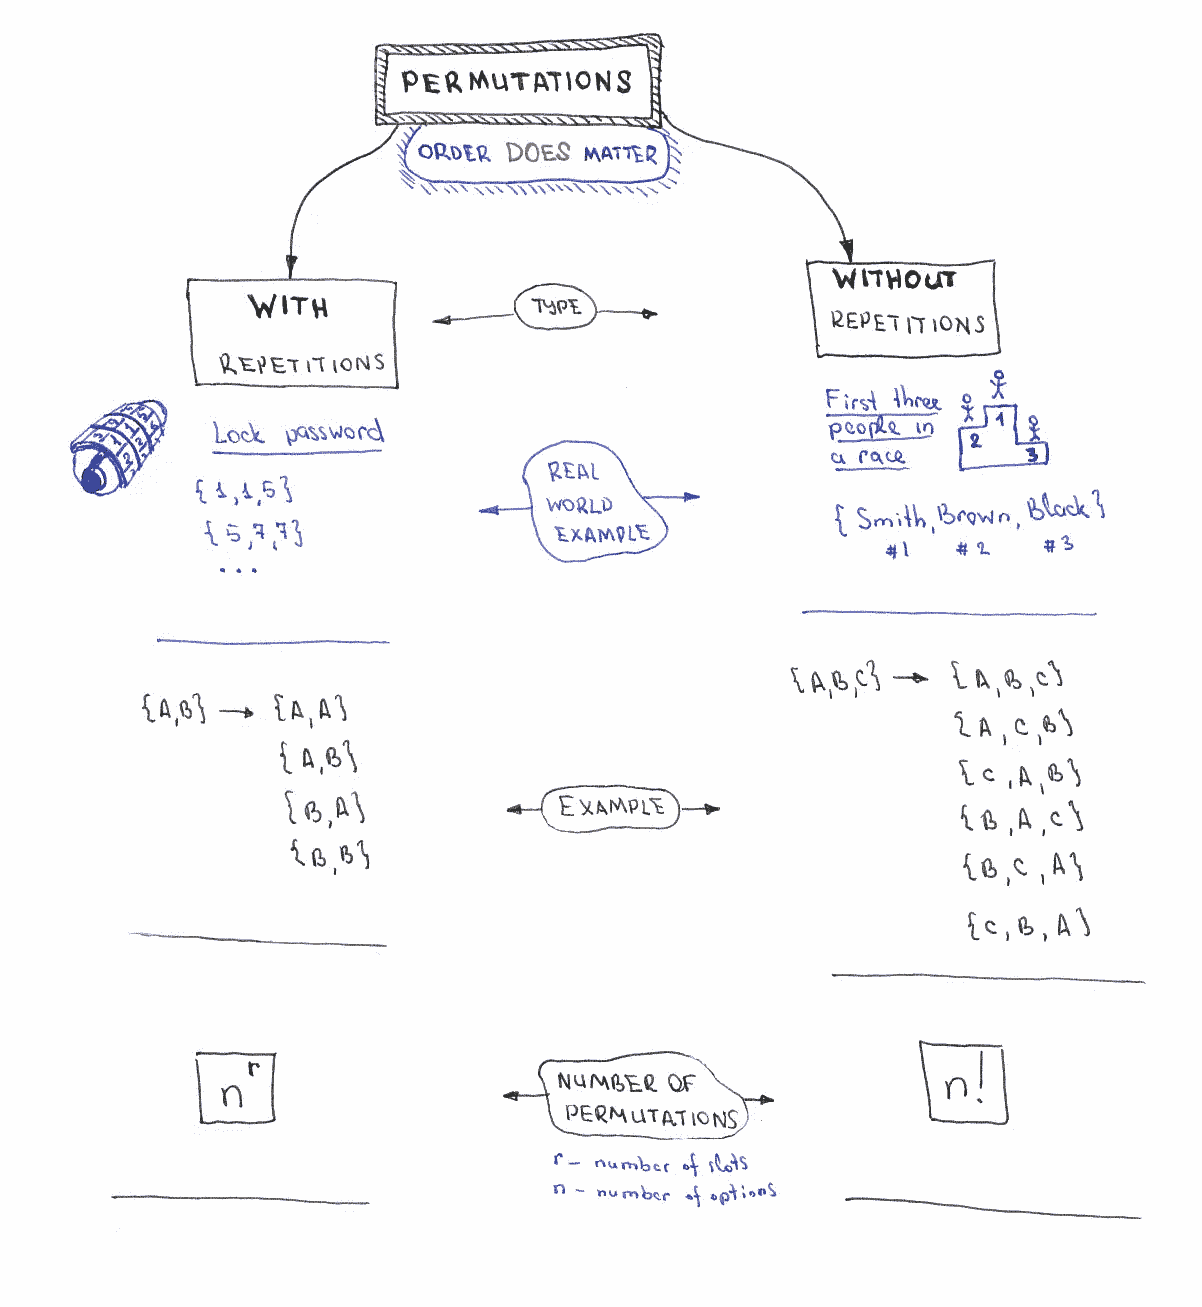 PERMUTATIONS
ORDER DOES MATTER
WITH
REPETITIONS
TYPE
WITHOUT
REPETITIONS
Lock password
{1,1,5}
{5,7,7}
...
REAL
WORLD
EXAMPLE
First three
people in
a race
1
2
3
{Smith, Brown, Black}
#1 #2 #3
{A,B} → {A,A}
{A,B}
{B,A}
{B,B}
EXAMPLE
{A,B,C} → {A,B,C}
{A,C,B}
{C,A,B}
{B,A,C}
{B,C,A}
{C,B,A}
n^r
NUMBER OF
PERMUTATIONS
r – number of slots
n – number of options
n!